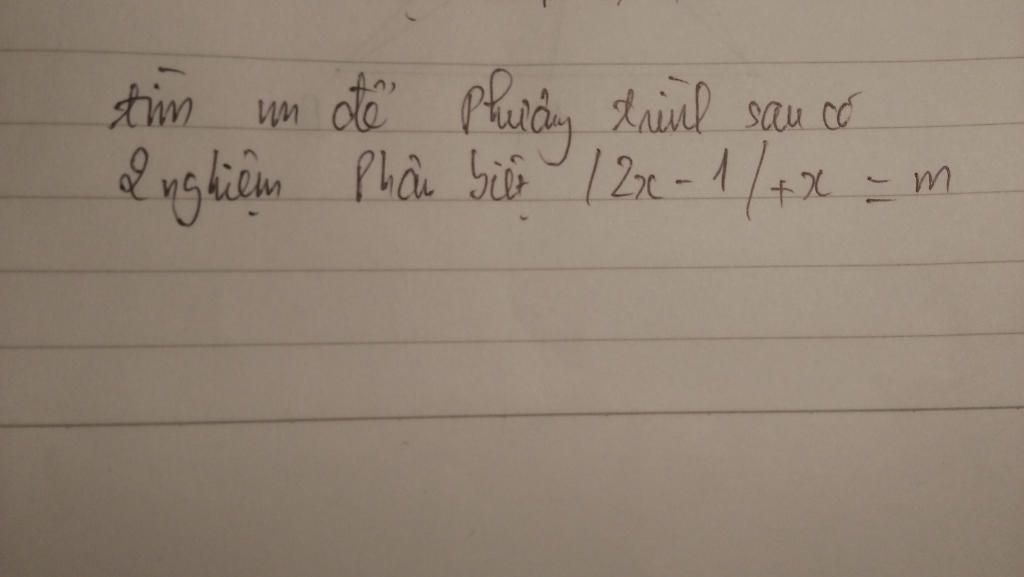 tìm m để phương trình sau có
2 nghiệm phân biệt |2x - 1| + x = m